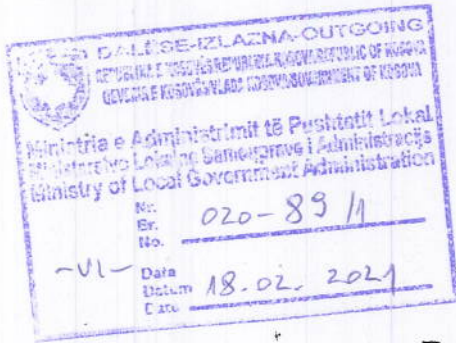 DALËSE-IZLAZNA-OUTGOING
REPUBLIKA E KOSOVËS-REPUBLIKA KOSOVA-REPUBLIC OF KOSOVA
QEVERIA E KOSOVËS-VLADA KOSOVA-GOVERNMENT OF KOSOVA
Ministria e Administrimit të Pushtetit Lokal
Ministarstvo Lokalne Samouprave i Administracije
Ministry of Local Government Administration
Nr.
Br.
No. 020-89/1
-VI-
Data
Datum
Date 18.02.2021